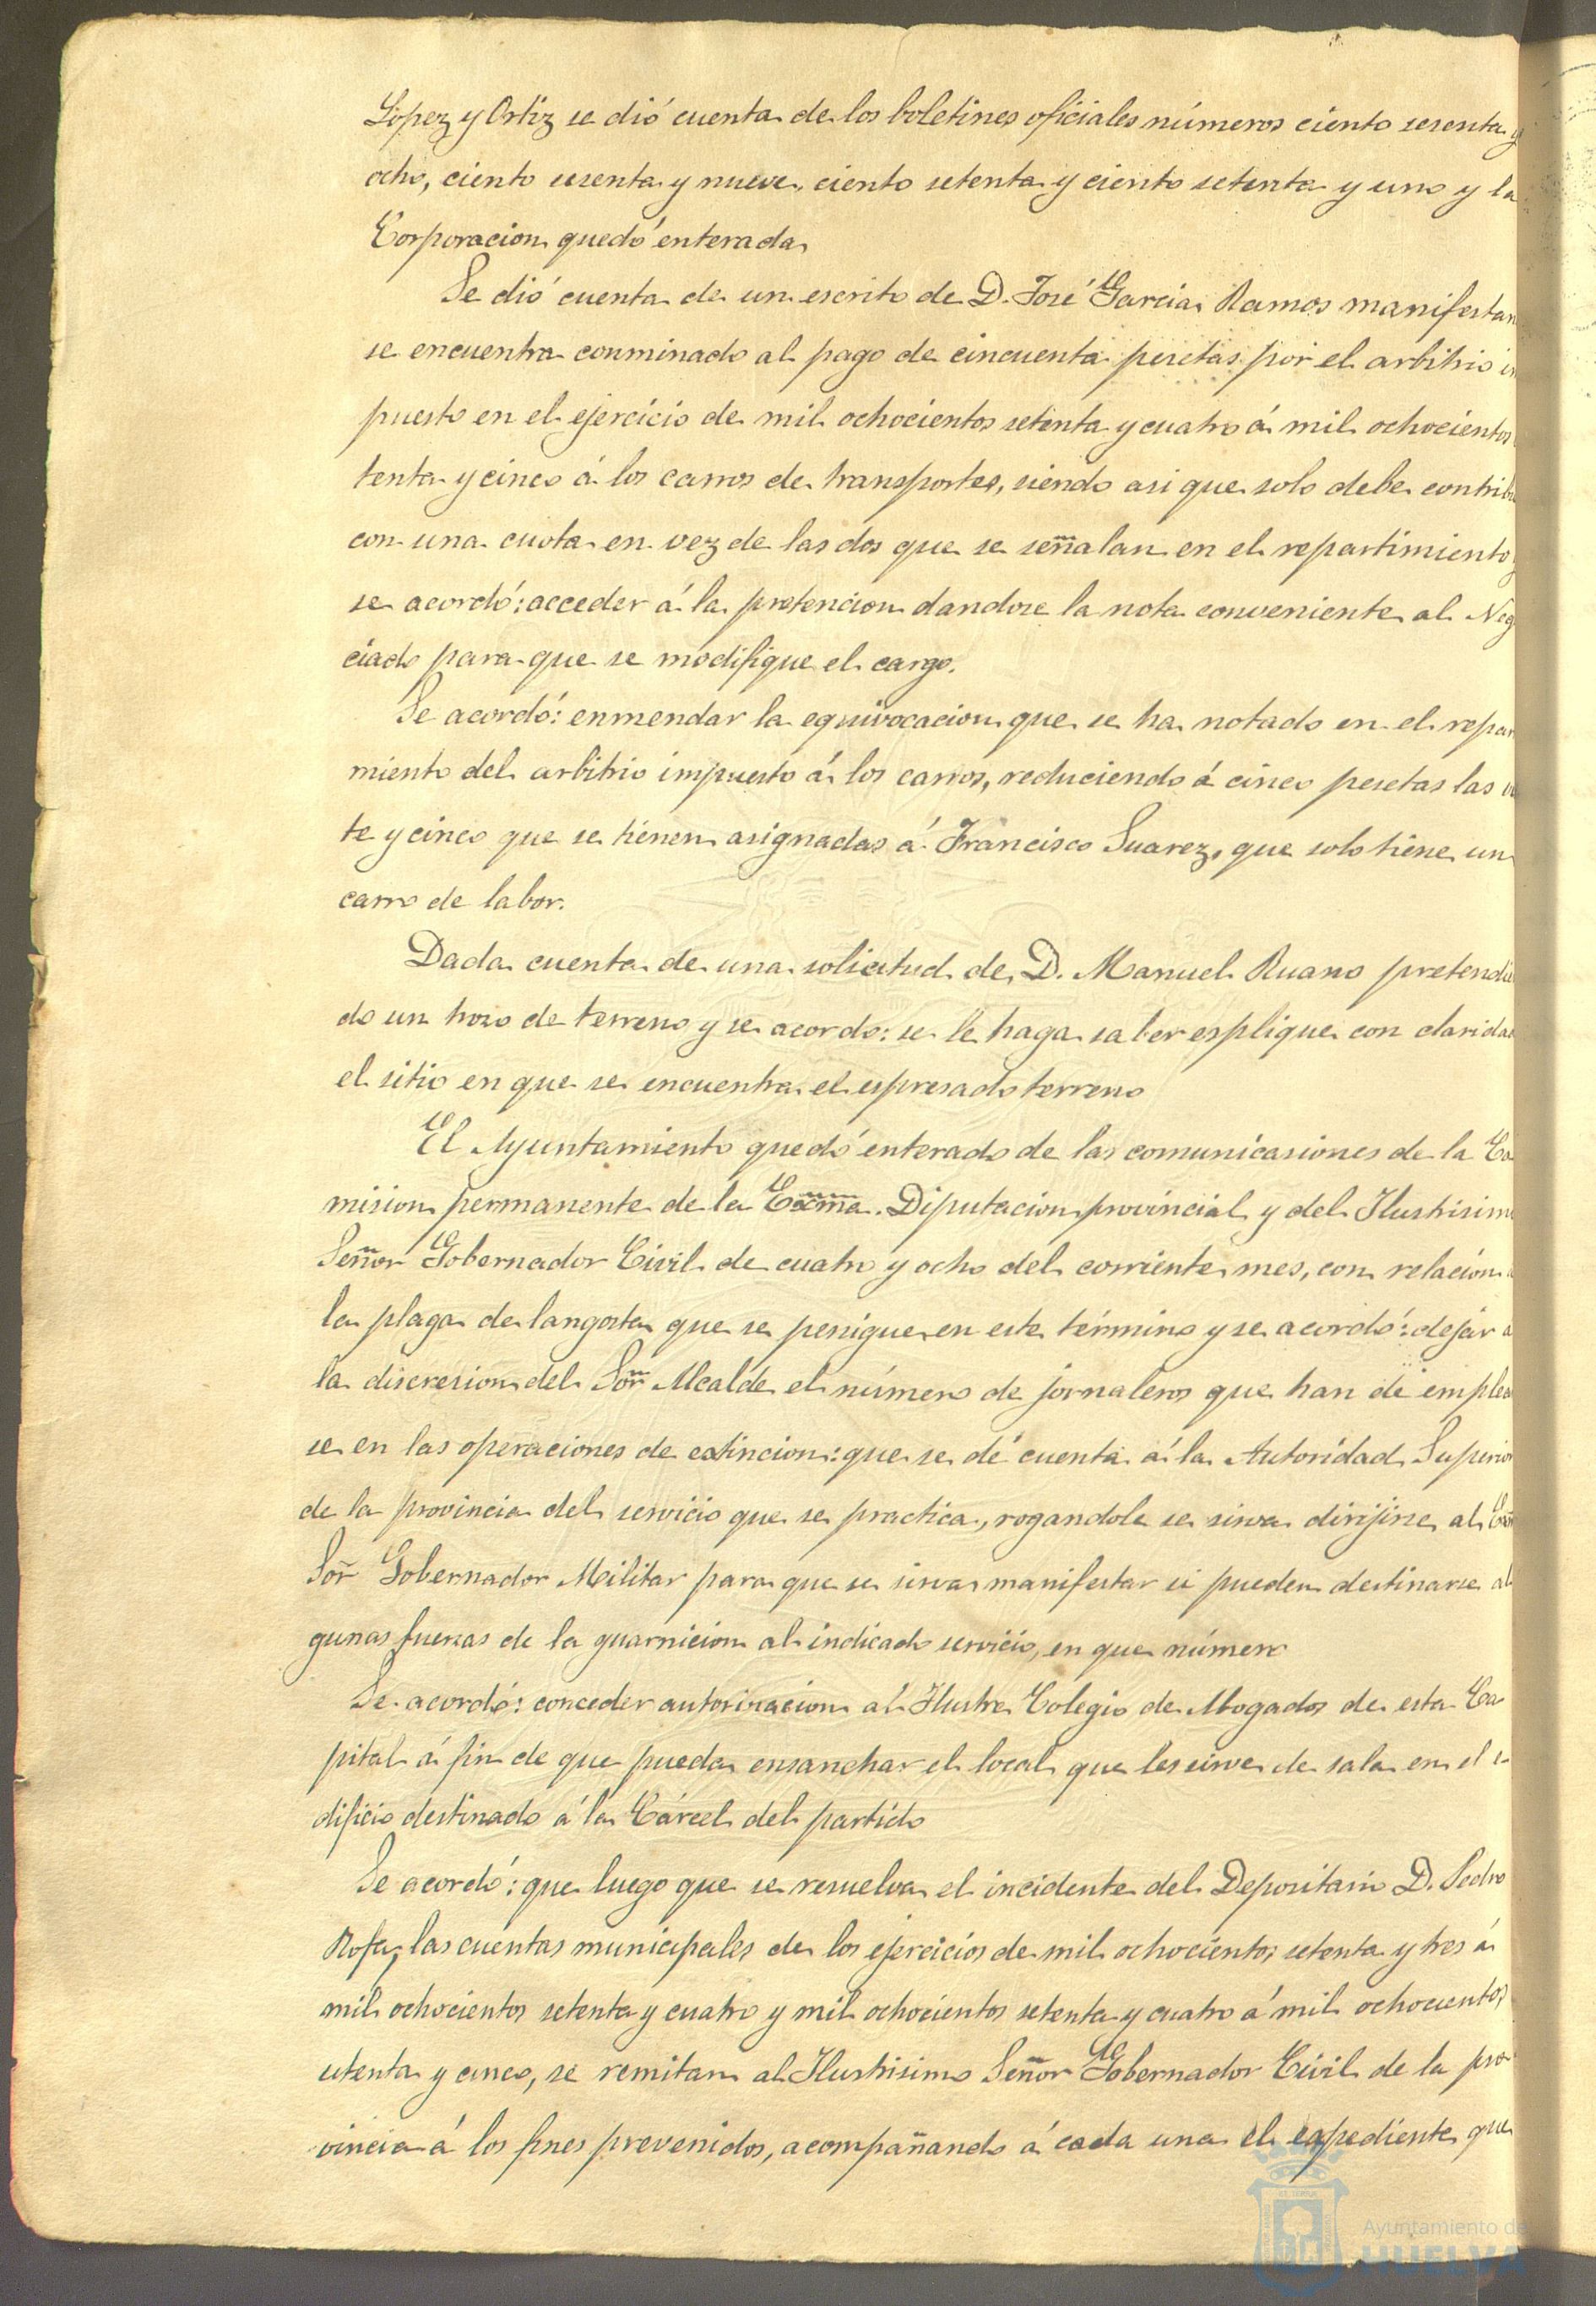 López y Ortiz se dió cuenta de los boletines oficiales números ciento sesenta y
ocho, ciento sesenta y nueve, ciento setenta y ciento setenta y uno y la
Corporacion quedó enterada
Se dió cuenta de un escrito de D. José Garcia Ramos manifestan
se encuentra conminado al pago de cincuenta pesetas por el arbitrio im
puesto en el ejercicio de mil ochocientos setenta y cuatro á mil ochocientos
tenta y cinco á los carros de transportes, siendo asi que solo debe contribu
con una cuota en vez de las dos que se señalan en el repartimiento y
se acordó: acceder á la pretencion dandose la nota conveniente al Neg
ciado para que se modifique el cargo.
Se acordó: enmendar la equivocacion que se ha notado en el repar
miento del arbitrio impuesto á los carros, reduciendo á cinco pesetas las ve
te y cinco que se tienen asignadas á Francisco Suarez, que solo tiene un
carro de labor.
Dada cuenta de una solicitud de D. Manuel Ruano pretendie
do un trozo de terreno y se acordo: se le haga saber esplique con claridad
el sitio en que se encuentra el espresado terreno
El Ayuntamiento quedó enterado de las comunicasiones de la Co
mision permanente de la Excma. Diputacion provincial y del Ilustrisimo
Señor Gobernador Civil de cuatro y ocho del corriente mes, con relación a
la plaga de langosta que se persigue en este término y se acordó: dejar a
la discresion del Sor Alcalde el número de jornaleros que han de emplea
se en las operaciones de extincion: que se dé cuenta á la Autoridad Superior
de la provincia del servicio que se practica, rogandole se sirva dirijirse al Exmo
Sor Gobernador Militar para que se sirva manifestar si pueden destinarse al
gunas fuerzas de la guarnicion al indicado servicio, en que número
Se acordó: conceder autorizacion al Ilustre Colegio de Abogados de esta Ca
pital á fin de que pueda ensanchar el local que les sirve de sala en el e-
dificio destinado á la Cárcel del partido
Se acordó: que luego que se resuelva el incidente del Depositario D. Pedro
Rofa, las cuentas municipales de los ejercicios de mil ochocientos setenta y tres á
mil ochocientos setenta y cuatro y mil ochocientos setenta y cuatro á mil ochocientos
setenta y cinco, se remitan al Ilustrisimo Señor Gobernador Civil de la pro
vincia á los fines prevenidos, acompañando á cada una el expediente que
Ayuntamiento de
HUELVA